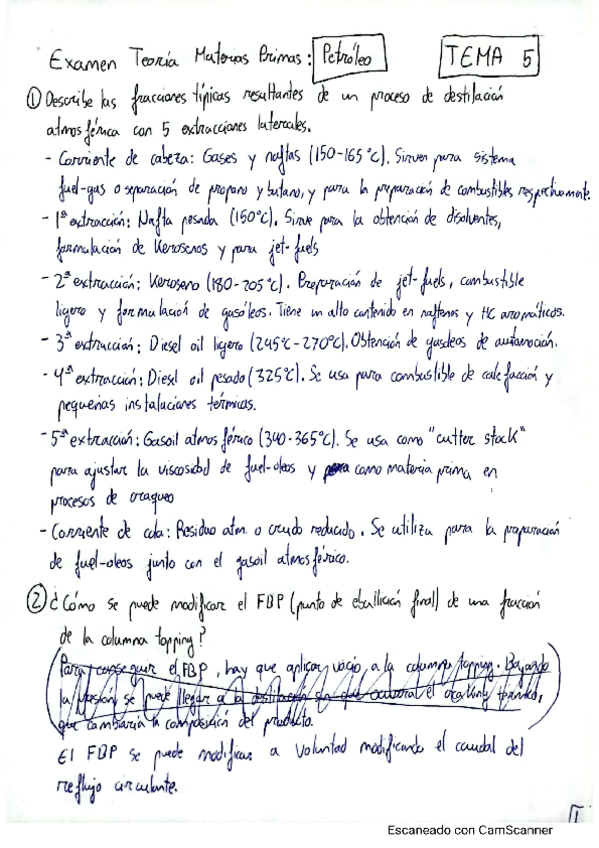 Examen Teoría Materias Primas: Petróleo TEMA 5
① Describe las fracciones típicas resultantes de un proceso de destilación
atmosférica con 5 extracciones laterales.
- Corriente de cabeza: Gases y naftas (150-165°C). Sirven para sistema
fuel-gas o separación de propano y butano, y para la preparación de combustibles respectivamente.
- 1ª extracción: Nafta pesada (150°C). Sirve para la obtención de disolventes,
formulación de Kerosenos y para jet-fuels
- 2ª extracción: Keroseno (180-205°C). Preparación de jet-fuels, combustible
ligero y formulación de gasóleos. Tiene un alto contenido en naftenos y HC aromáticos.
- 3ª extracción: Diesel oil ligero (245°C-270°C). Obtención de gasóleos de automoción.
- 4ª extracción: Diesel oil pesado (325°C). Se usa para combustible de calefacción y
pequeñas instalaciones térmicas.
- 5ª extracción: Gasoil atmosférico (340-365°C). Se usa como "cutter stock"
para ajustar la viscosidad de fuel-oleos y como materia prima en
procesos de craqueo
- Corriente de cola: Residuo atm. o crudo reducido. Se utiliza para la preparación
de fuel-oleos junto con el gasoil atmosférico.
② ¿Cómo se puede modificar el FBP (punto de ebullición final) de una fracción
de la columna topping?
(Para conseguir el FBP, hay que aplicar vacío a la columna topping. Bajando
la presión se puede llegar a la destilación sin que ocurra el cracking térmico,
que cambiaría la composición del producto.
El FBP se puede modificar a voluntad modificando el caudal del
reflujo circulante.
1
Escaneado con CamScanner